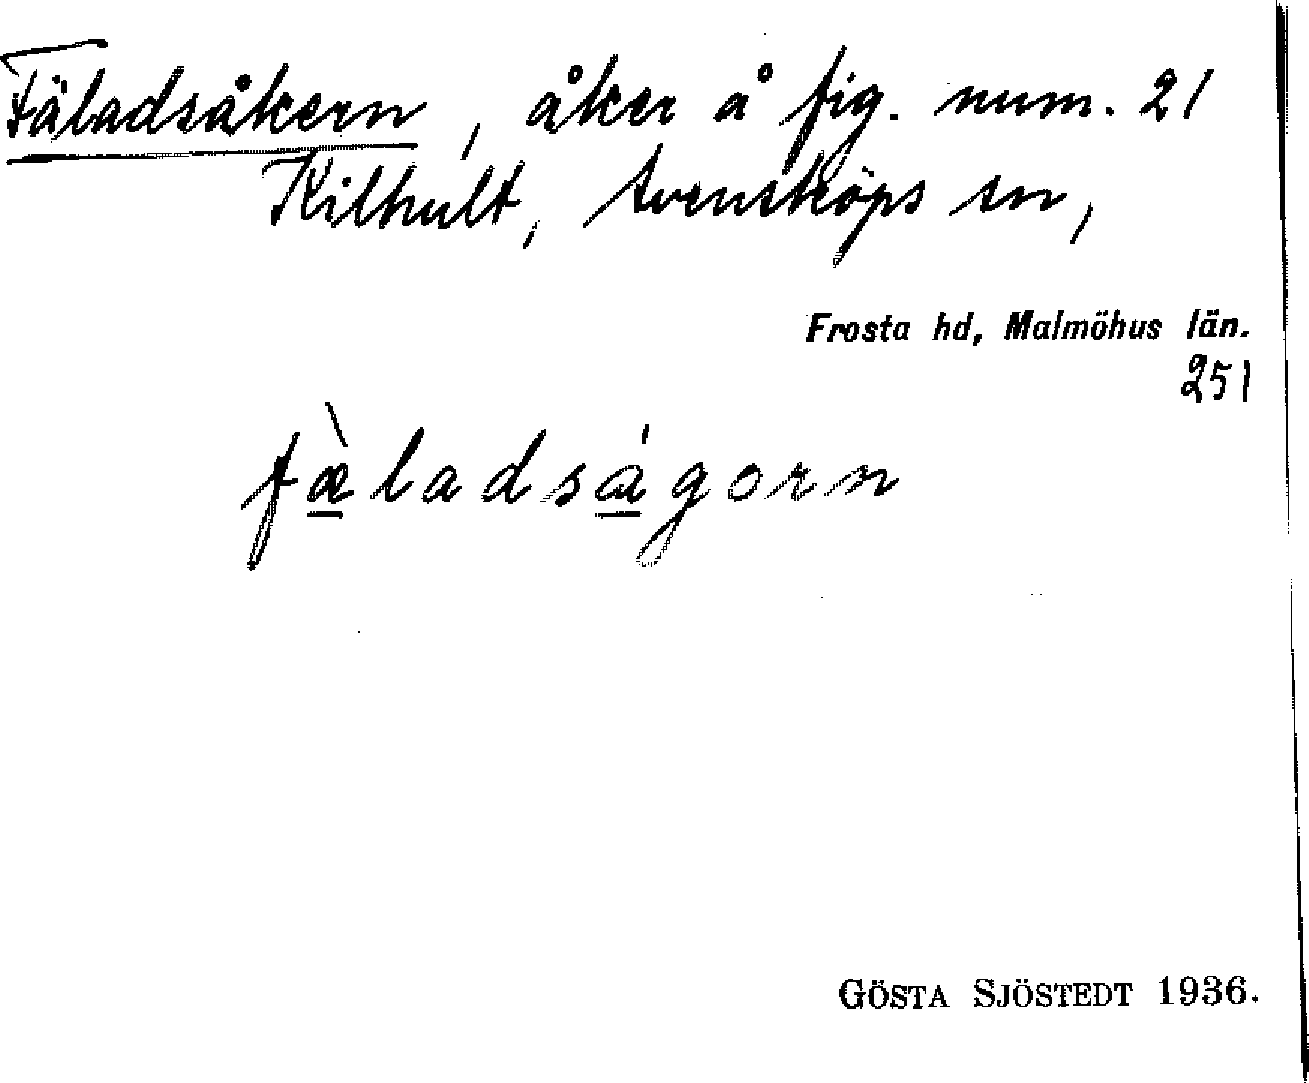 Fäladsåkern, åker å fig. num. 21
Kilhult, Svensköps sn,
Frosta hd, Malmöhus län.
251
fæ̀ladság​orn
GÖSTA SJÖSTEDT 1936.